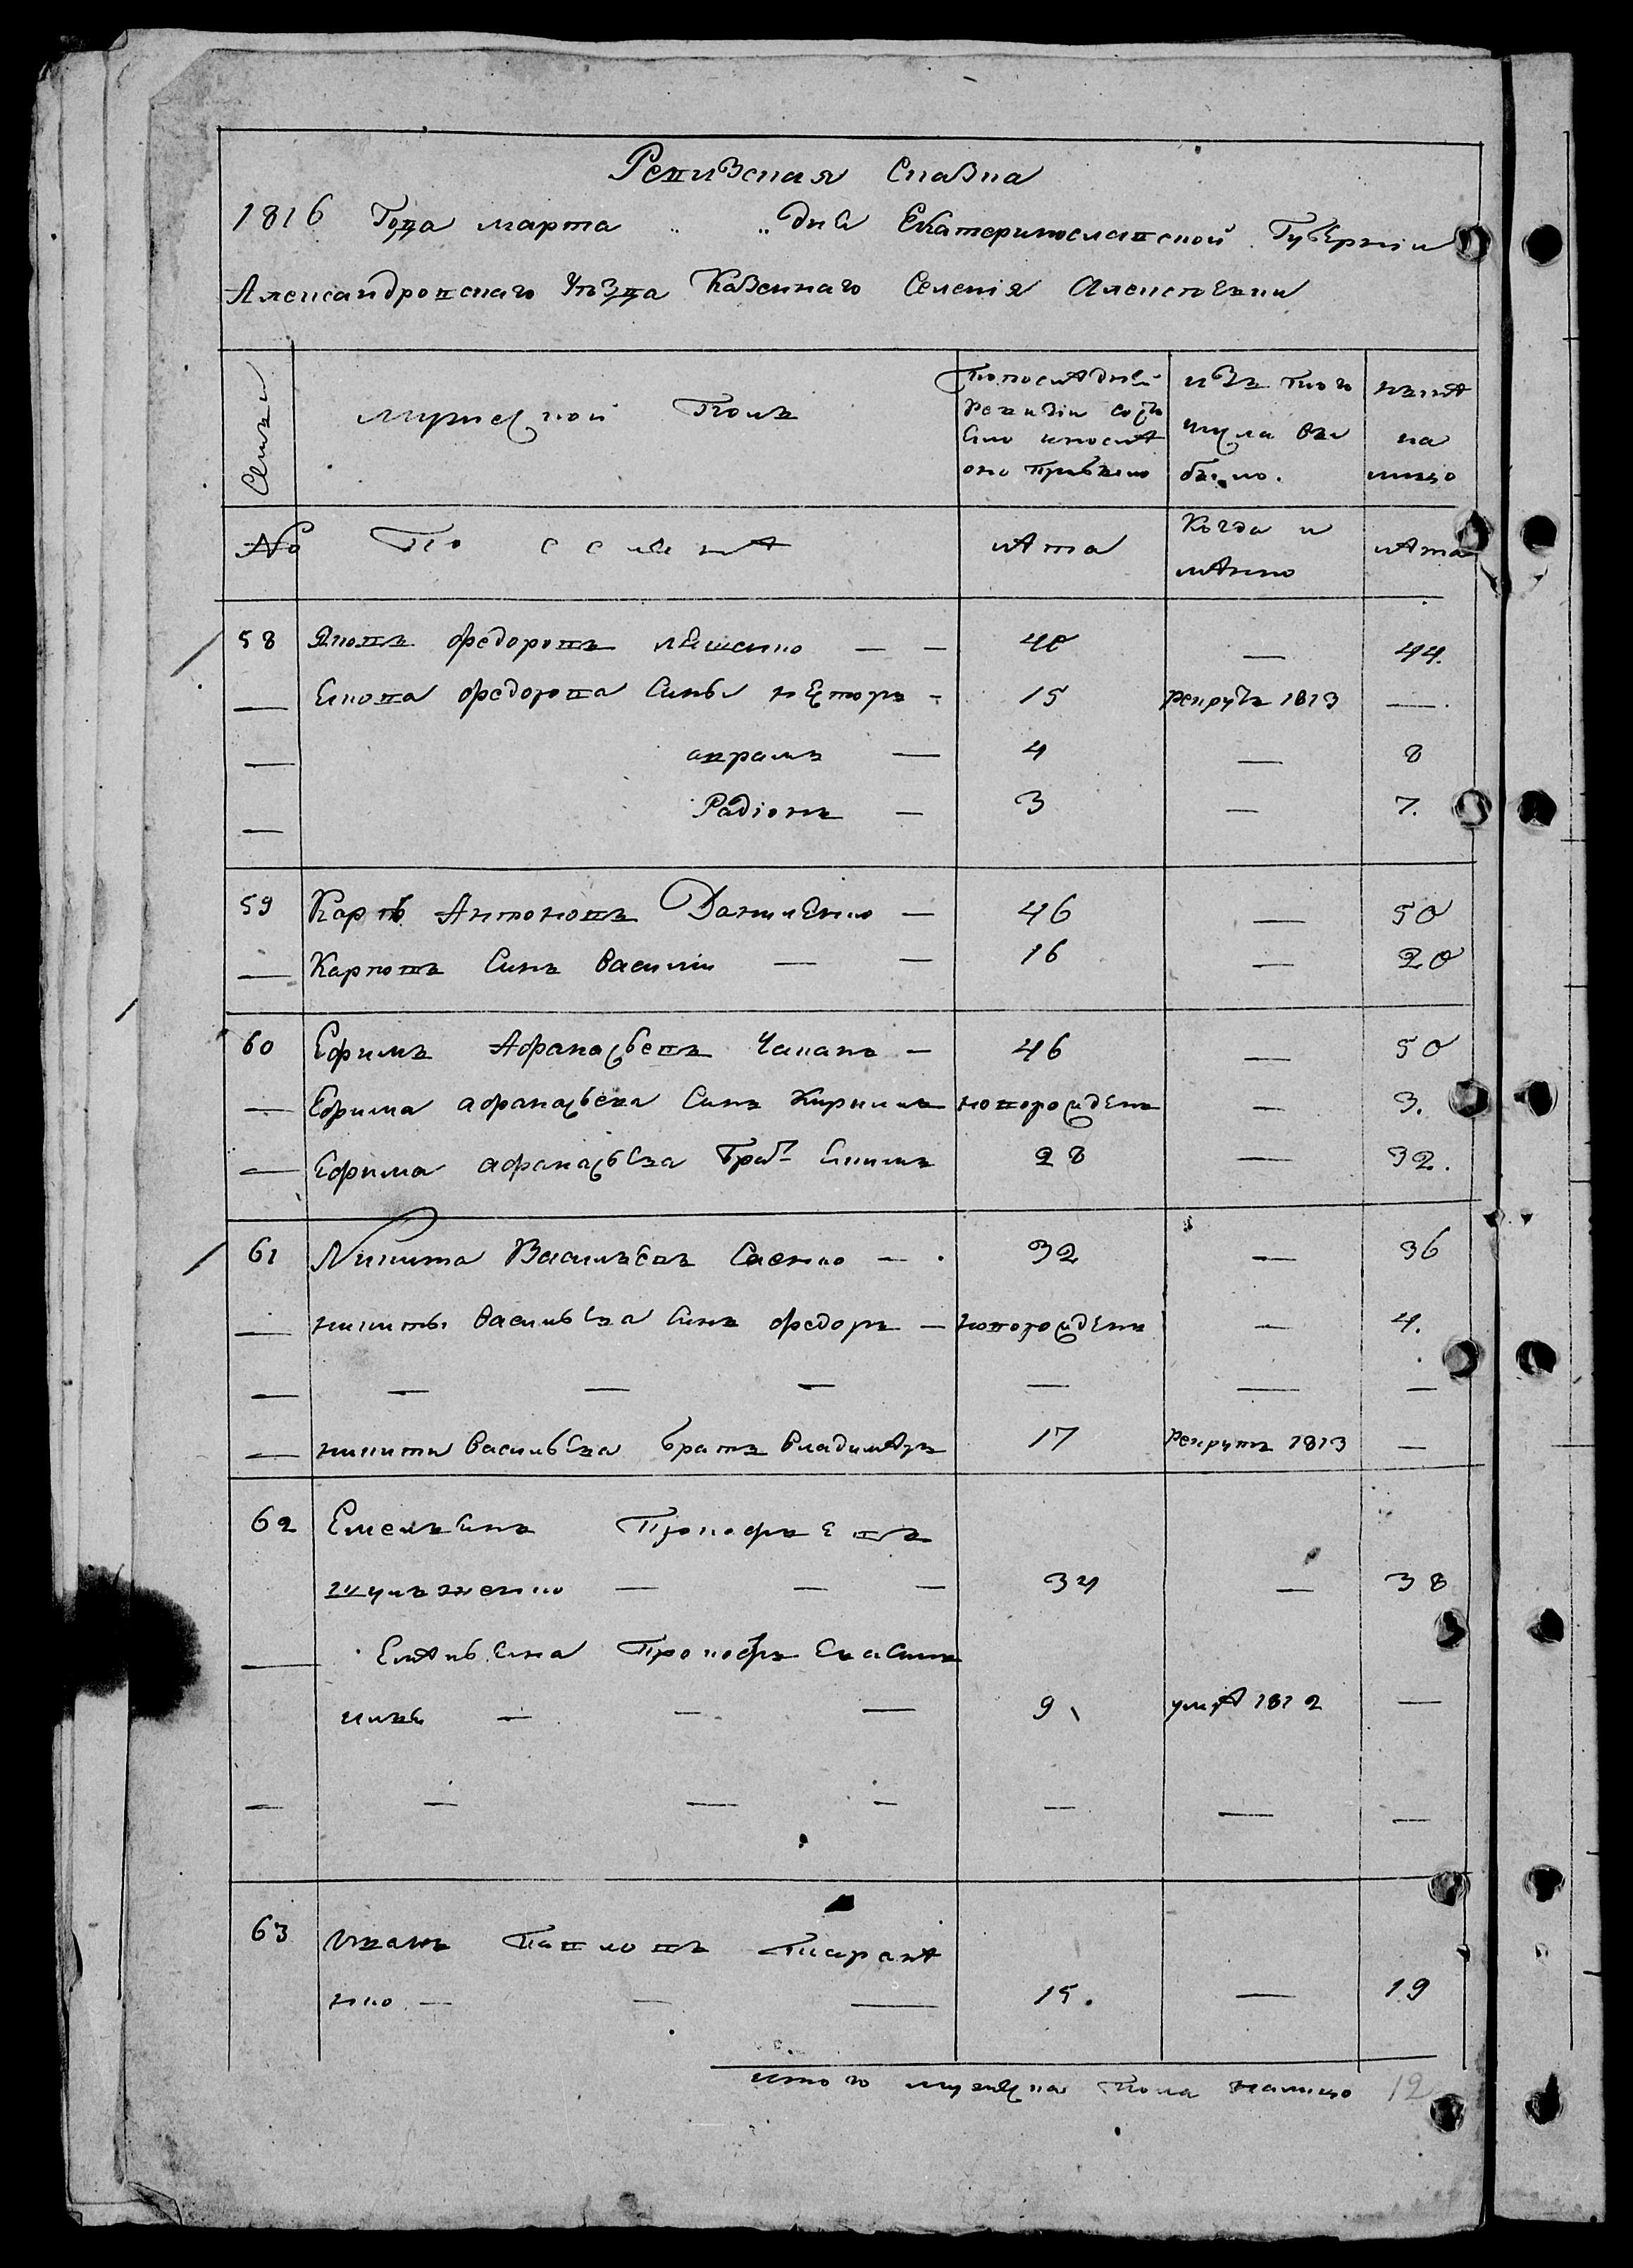 Ревизская Сказка
1816 Года марта „ „ дня Екатеринославской Губерніи
Александровскаго Уѣзда Казеннаго Селенія Алексѣевки
Семьи
мужеской Полъ
По последней ревизіи состояло и после оно прибыло
изъ того числа выбыло.
ныне на лицо
№
По сселенѣ
лѣта
Когда и
лѣта
имѣнно
58 Яковъ федоровъ ляшенко — — 40 — 44.
— Якова федорова Сыны нестор - 15 рекрутъ 1813 —
— аврамъ — 4 — 8
— Радіонъ — 3 — 7.
59 Карпъ Антоновъ Даниленко — 46 — 50
— Карповъ Синъ василіи — — 16 — 20
60 Ефимъ Афанасьевъ Чапанъ — 46 — 50
— Ефима афанасьева Синъ Кирилъ новорожденъ — 3.
— Ефима афанасьева Брат Екимъ 28 — 32.
61 Никита Васильевъ Саенко — 32 — 36
— никиты васильева Синъ федоръ — новорожденъ — 4.
— — — — — — —
— никити васильева братъ владимѣръ 17 рекрутъ 1813 —
62 Емельянъ Прокофьевъ
шулженко — — — 34 — 38
— Емѣльяна Прокофьева Синъ
— — — 9 умрѣ 1812 —
— — — — — — —
63 Иванъ Павловъ Писаренѣ
нко — — — 15. — 19
итого мужеска Пола налицо 12